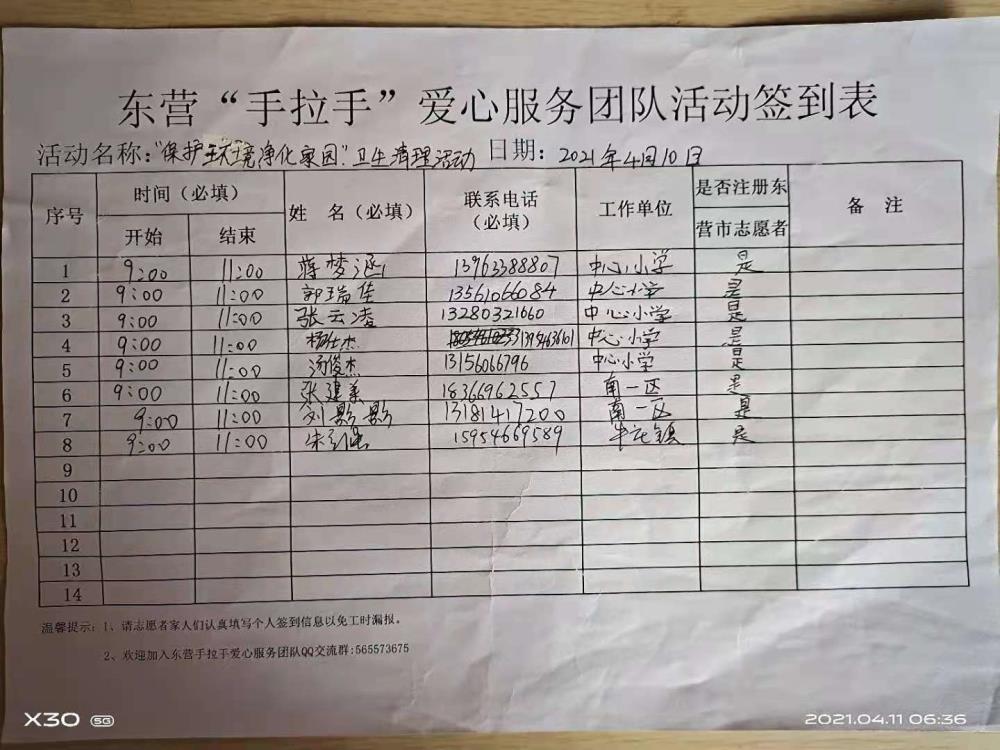 东营“手拉手”爱心服务团队活动签到表
活动名称：“保护环境净化家园”卫生清理活动 日期：2021年4月10日
序号 时间（必填） 姓 名（必填） 联系电话（必填） 工作单位 是否注册东营市志愿者 备 注
开始 结束
1 9:00 11:00 蒋梦涵 13963388807 中心小学 是
2 9:00 11:00 郭瑞佳 13561066084 中心小学 是
3 9:00 11:00 张云凌 13280321660 中心小学 是
4 9:00 11:00 杨仕杰 13954636101 中心小学 是
5 9:00 11:00 汤俊杰 13156066796 中心小学 是
6 9:00 11:00 张建美 18366962557 南一区 是
7 9:00 11:00 刘影影 13181417200 南一区 是
8 9:00 11:00 15954669589 牛庄镇 是
9
10
11
12
13
14
温馨提示：1、请志愿者家人们认真填写个人签到信息以免工时漏报。
2、欢迎加入东营手拉手爱心服务团队QQ交流群:565573675
X30 5G
2021.04.11 06:36